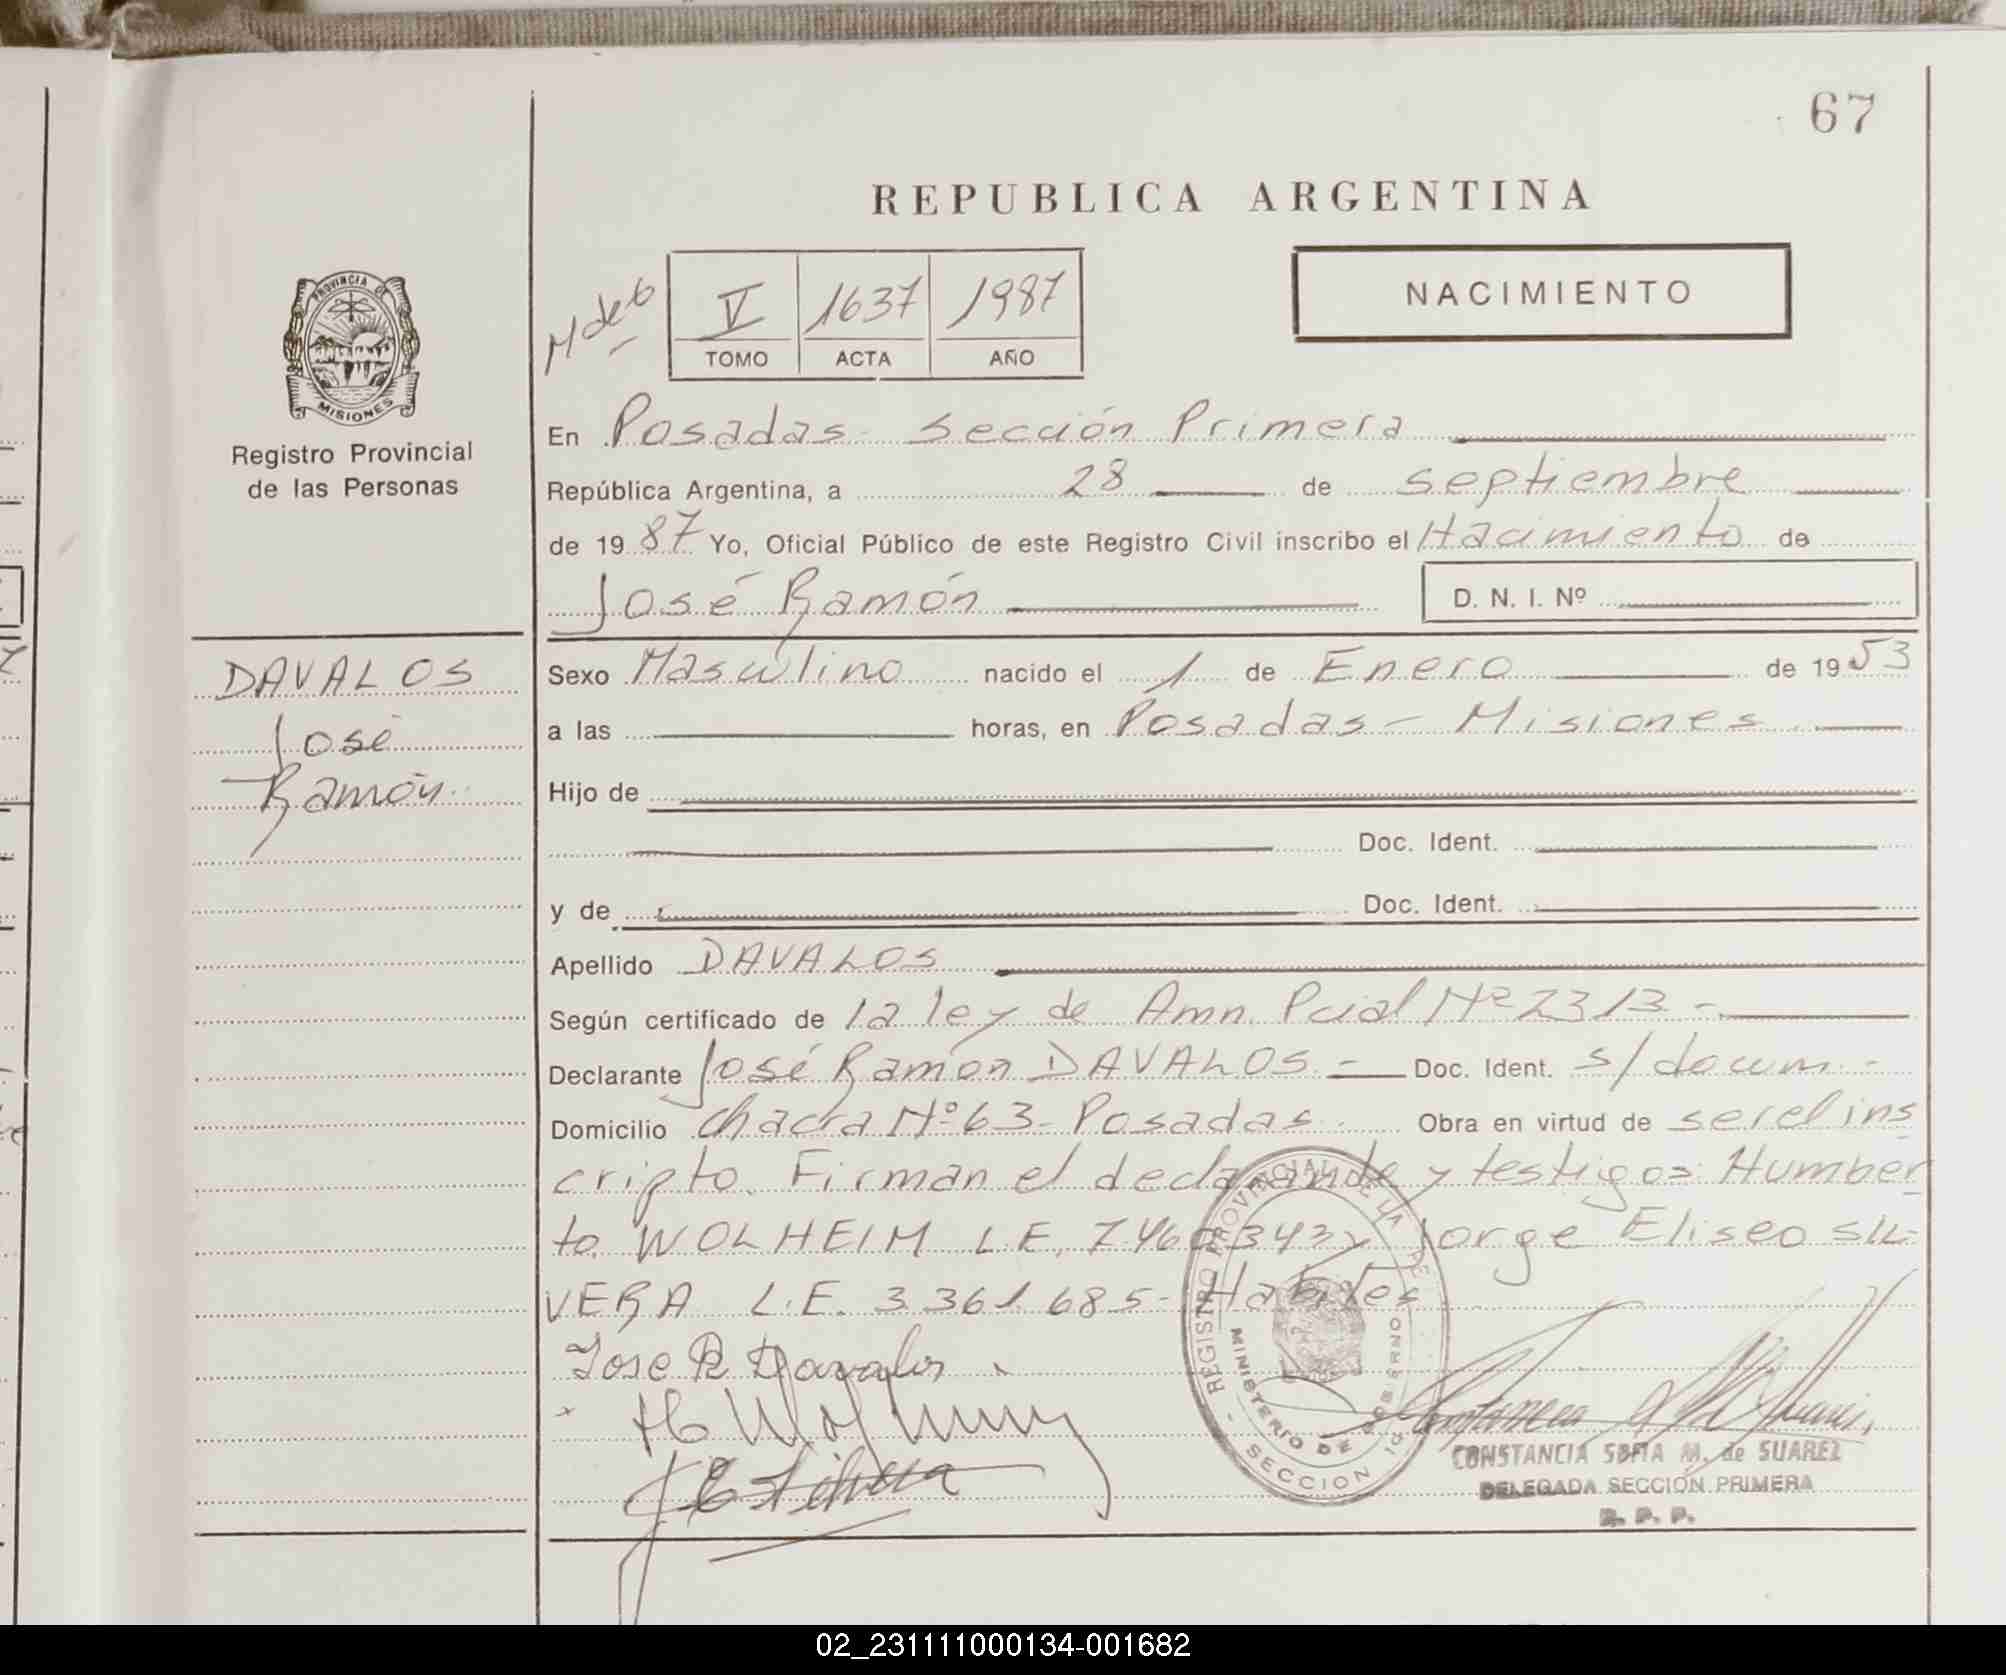 67
REPUBLICA ARGENTINA
PROVINCIA DE
MISIONES
Registro Provincial
de las Personas
M de 6
V 1637 1987
TOMO ACTA AÑO
NACIMIENTO
En Posadas - Sección Primera
República Argentina, a 28 de septiembre
de 1987 Yo, Oficial Público de este Registro Civil inscribo el Nacimiento de
José Ramón D. N. I. Nº
DAVALOS
José
Ramón
Sexo Masculino nacido el 1 de Enero de 1953
a las horas, en Posadas - Misiones
Hijo de
Doc. Ident.
y de Doc. Ident.
Apellido DAVALOS
Según certificado de la ley de Amn. Pcial Nº 2313 -
Declarante José Ramón DAVALOS - Doc. Ident. s/docum. -
Domicilio chacra Nº 63 - Posadas Obra en virtud de ser el ins
cripto. Firman el declarante y testigos: Humber
to WOLHEIM L.E. y Jorge Eliseo SIL-
VERA L.E. 3 361 685 - Habiles
Jose R Davalos
CONSTANCIA SOFIA M. de SUAREZ
DELEGADA SECCIÓN PRIMERA
R. P. P.
REGISTRO PROVINCIAL DE LA DE
MINISTERIO DE GOBIERNO
SECCION 1a
02_231111000134-001682